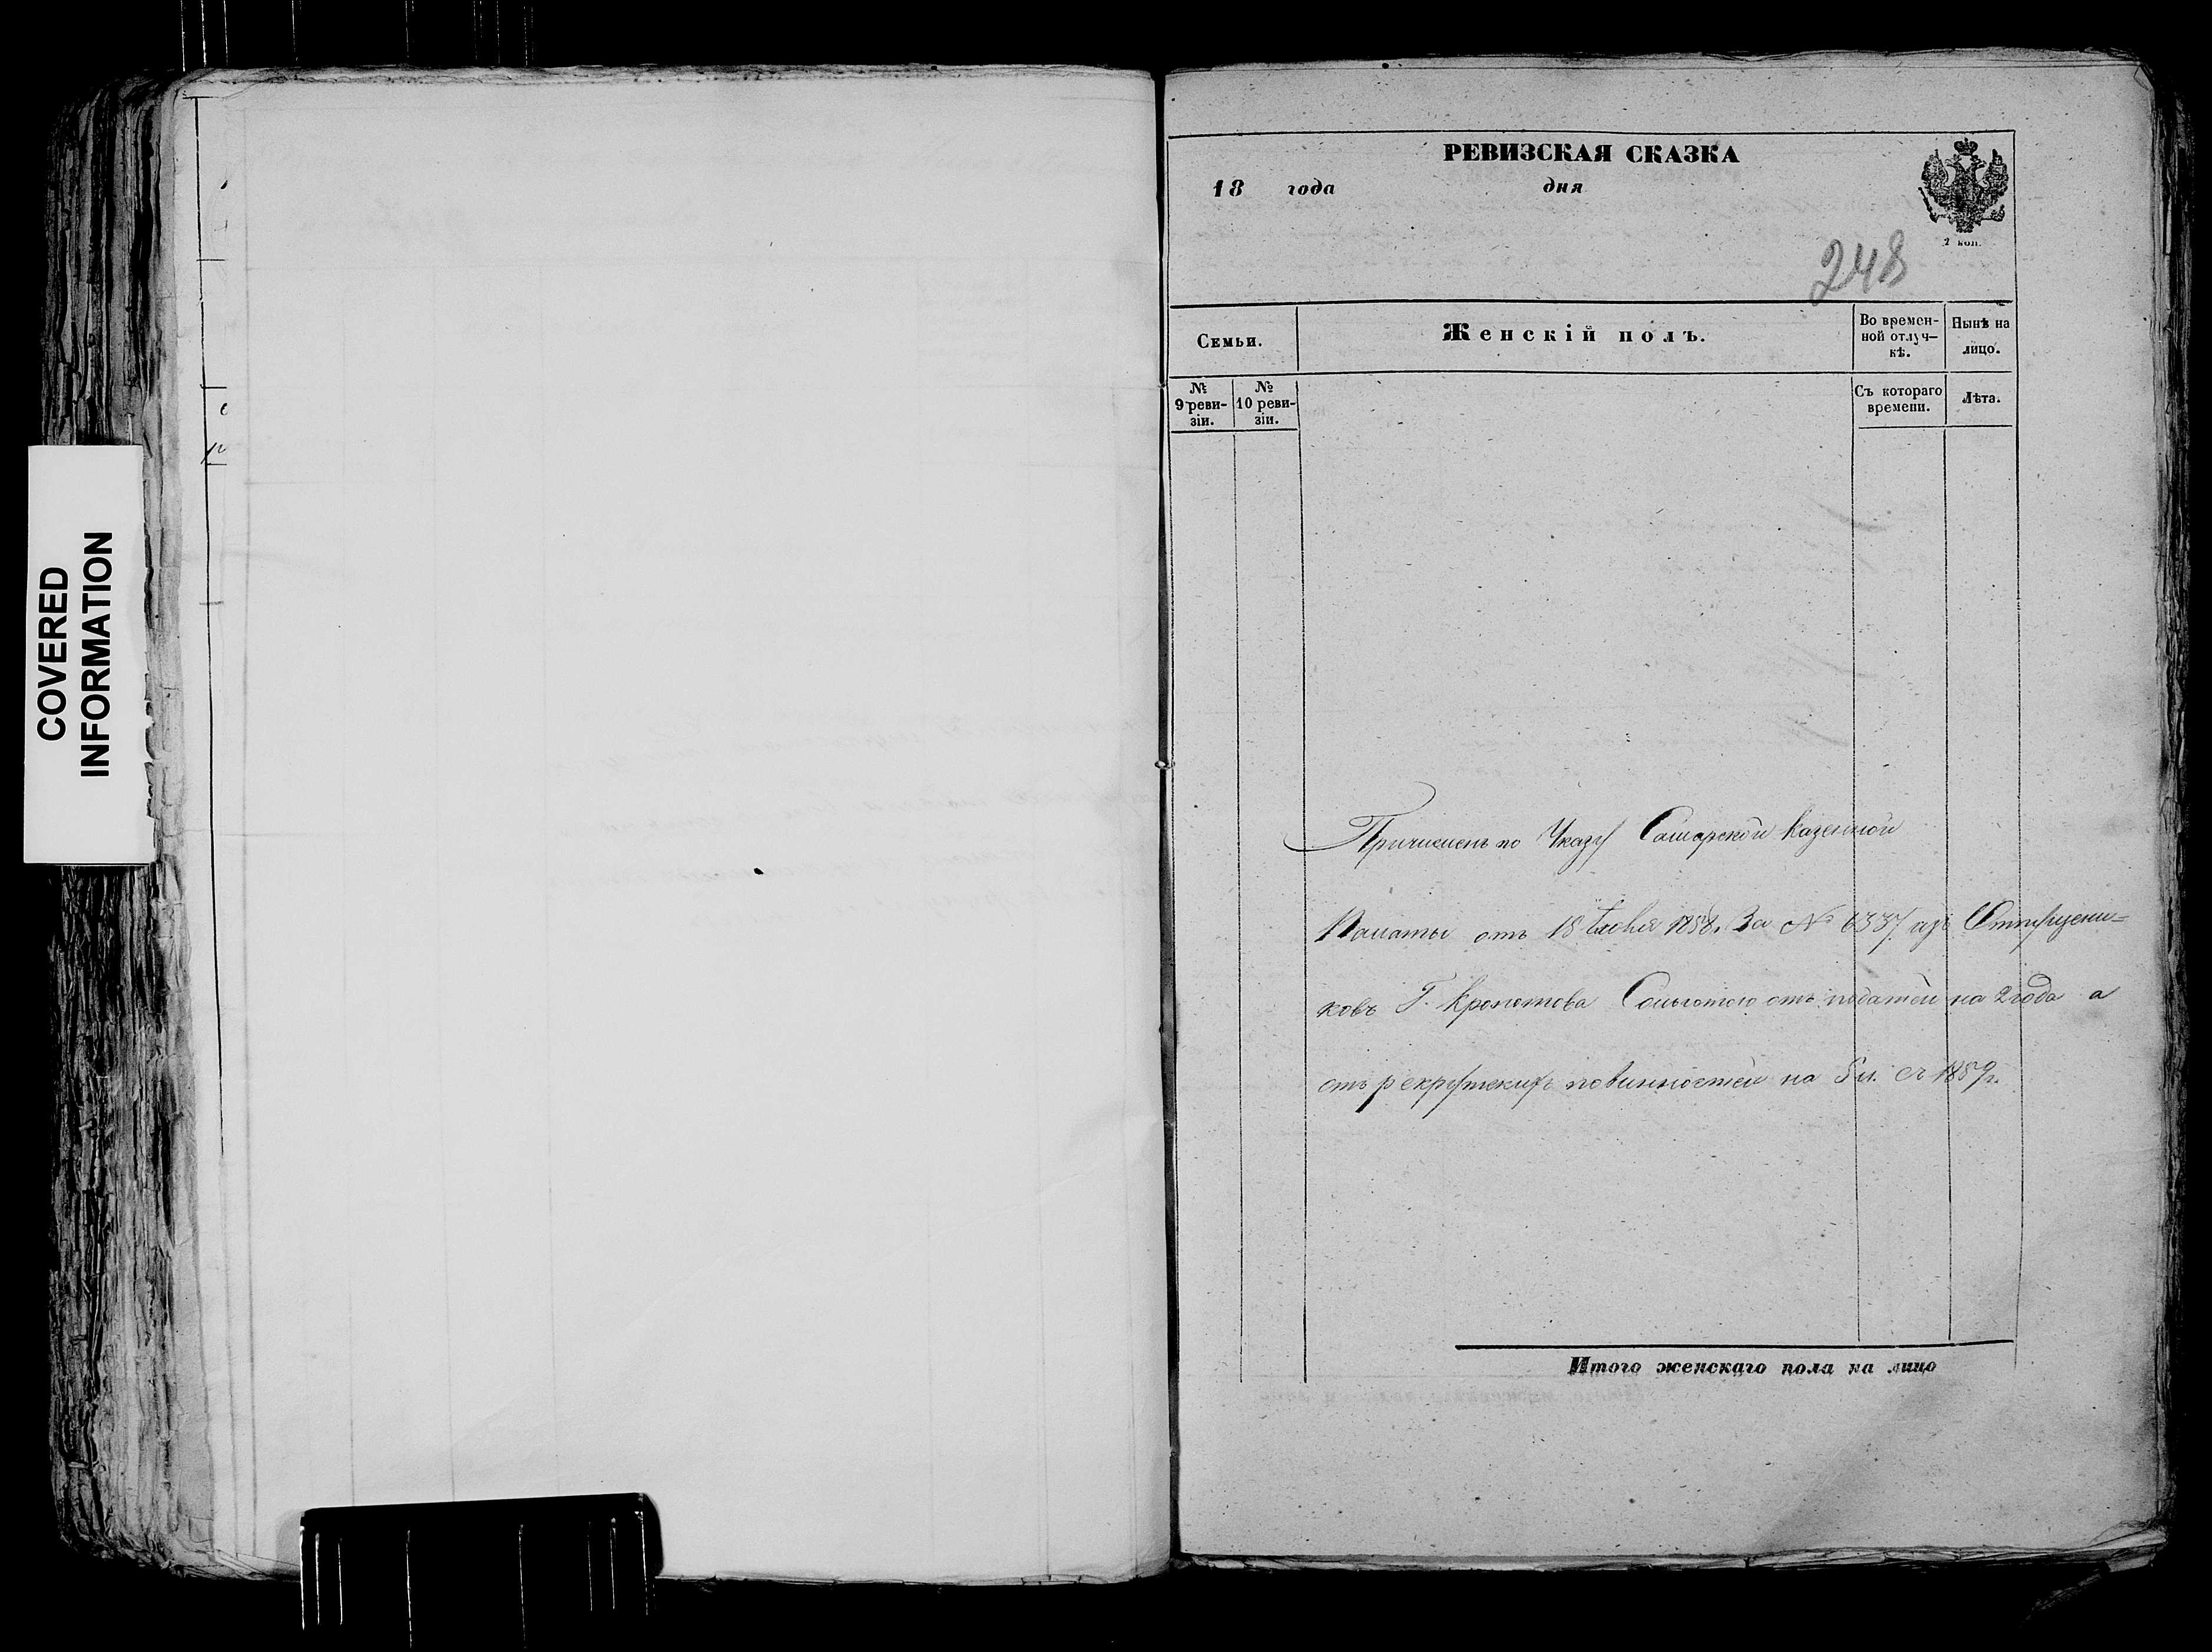 COVERED
INFORMATION
РЕВИЗСКАЯ СКАЗКА
18 года дня
2 коп.
248
Семьи.
Женскій полъ.
Во времен-
ной отлуч-
кѣ.
Нынѣ на
лицо.
№
9 реви-
зіи.
№
10 реви-
зіи.
Съ котораго
времени.
Лѣта.
Причисленъ по Указу Самарской Казенной
Палаты отъ 18 1858. За № 6337 изъ Отпущени=
ковъ Г. Кропотова Сольготою отъ податей на 2 года а
отъ рекрутскихъ повинностей на 5 л. съ 1859 г.
Итого женскаго пола на лицо